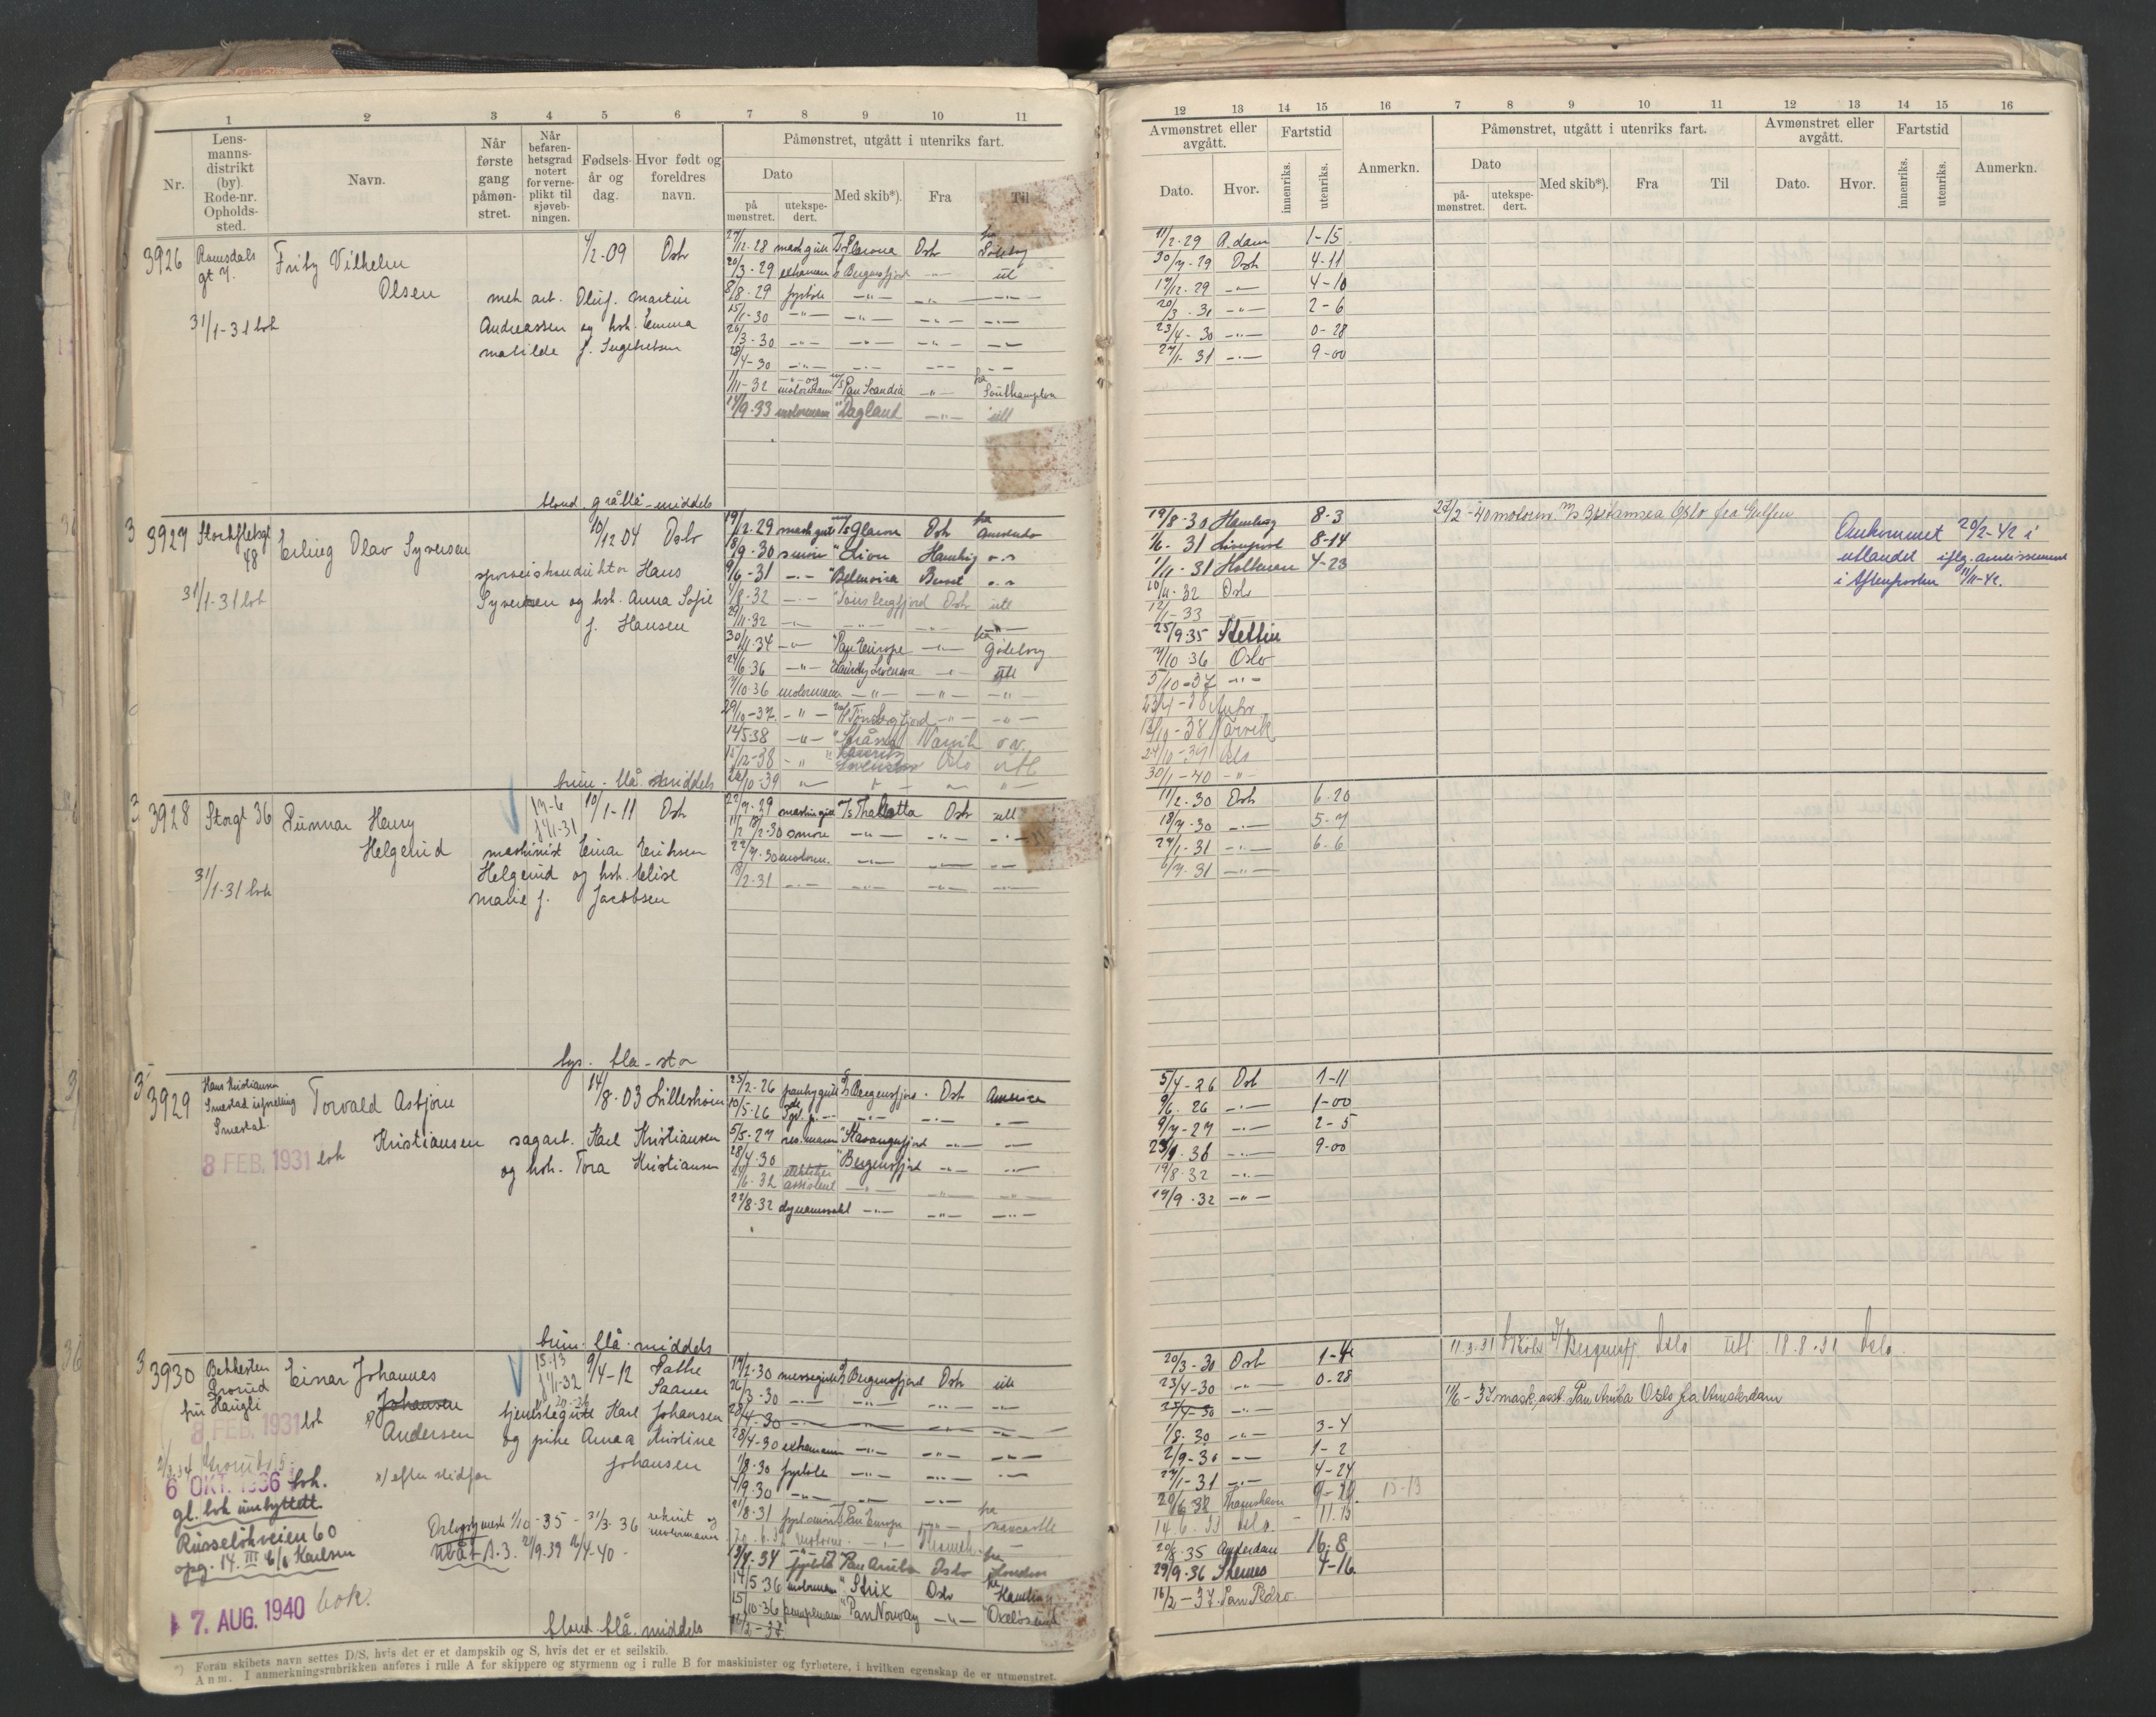 1 2 3 4 5 6 7 8 9 10 11
Nr.
Lens-
manns-
distrikt
(by).
Rode-nr.
Opholds-
sted.
Navn.
Når
første
gang
påmøn-
stret.
Når
befaren-
hetsgrad
notert
for verne-
plikt til
sjøveb-
ningen.
Fødsels-
år og
dag.
Hvor født og
foreldres
navn.
Påmønstret, utgått i utenriks fart.
Dato
på
mønstret.
utekspe-
dert.
Med skib*).
Fra
Til
3926 Romsdals
gt 7.
Fritz Vilhelm
Olsen
4/2-09 Oslo
mek arb. Oluf. Martin
Andreassen og hsh. Emma
Matilde f. Ingebretsen
31/1-31 bok
27/12-28
20/3-29 Bergensfjord utl
8/8-29 fyrbøter
15/1-30
26/3-30
28/4-30
1/11-32 motormann Pan Scandia Southampton
14/9-33 motormann Dagland utl
blond. gråblå middels
3927 Storkflebsgt
48
Erling Olav Syversen
10/12 04 Oslo
sporveiskonduktør Hans
Syversen og hsh. Anna Sofie
f. Hansen
31/1-31 bok
19/12-29 Oslo
18/9-30 smører Lion Hamburg o.s
9/6-31 Belmoira o.s
1/8-32 Tønsbergfjord Oslo utl
29/11-32
30/11-34 Pan Europe Gøteborg
24/6-36 utl
7/10-36 motormann
29/10-37 Tønsbergfjord
14/5 38 Narvik o.v.
15/12-38 Oslo utl
26/10-39
brun - blå middels
3928 Storgt 36 Gunnar Henry
Helgerud
10/1-11 Oslo
maskinist Einar Eriksen
Helgerud og hsh. Elise
Marie f. Jacobsen
31/1-31 bok
22/7-29 Thalatta Oslo utl
22/7-30 motorm.
18/2-31
lys - blå - stor
3929 Hans Kristiansen
Smestad
Torvald Asbjørn
Kristiansen
14/8-03 Lillestrøm
sagarb. Karl Kristiansen
og hsh. Tora Kristiansen
8 FEB. 1931 bok
25/2-26 Bergensfjord Oslo America
10/5-26
5/5-27 Stavangerfjord
28/4-30 Bergensfjord
24/6-32 assistent
22/8-32
brun - blå - middels
3930 Bekkesten
Grorud
fru Haugli
Einar Johannes
Johansen
x) Andersen
15-13
9/4-12
8 FEB. 1931 bok
tjenestegutt Karl Johansen
og pike Anna Kristine
Johansen
x) efter stidfar
6 OKT. 1936 bok.
gl. bok innbyttett.
Russeløkveien 60
opg. 14. III c/o Karlsen
1/10-35 - 31/3-36 rekrutt og
motormann
17 AUG. 1940 bok.
14/2-30 messegutt Bergensfjord Oslo utl
26/3-30
28/4-30
28/4-30 extramann
1/8-30 fyrbøter
4/9-30
21/8-31 Pan Europe Newcastle
13/4-34 Pan Aruba Oslo London
14/5 36 motormann Strix Oslo Hamburg
15/10-36 pumpemann Pan Norway Oxeløsund
16/2-37
blond. blå. middels
*) Foran skibets navn settes D/S, hvis det er et dampskib og S, hvis det er et seilskib.
Anm. I anmerkningsrubrikken anføres i rulle A for skippere og styrmenn og i rulle B for maskinister og fyrbøtere, i hvilken egenskap de er utmønstret.
12 13 14 15 16 7 8 9 10 11 12 13 14 15 16
Avmønstret eller
avgått.
Fartstid
Dato.
Hvor.
innenriks.
utenriks.
Anmerkn.
Påmønstret, utgått i utenriks fart.
Dato
på-
mønstret.
utekspe-
dert.
Med skib*).
Fra
Til
Avmønstret eller
avgått.
Dato.
Hvor.
Fartstid
innenriks.
utenriks.
Anmerkn.
11/2-29 A.dam 1-15
30/7-29 Oslo 4-11
19/12-29 4-10
20/3-30 2-6
23/4-30 0-28
27/1-31 9-00
19/8-30 Hamburg 8-3
1/6-31 Liverpool 8-14
1/11-31 4-23
10/11-32 Oslo
12/1-33
25/9-35 Stettin
7/10 36 Oslo
5/10-37
12/10-38 Narvik
24/10-39 Oslo
30/1-40
Oslo fra Gulfen
Omkommet 20/2-42 i
utlandet iflg. avertissement
i Aftenposten 11/11-42.
11/2-30 Oslo 6-20
18/7-30 5-7
27/1-31 6-6
6/7-31
5/4-26 Oslo 1-11
9/6-26 1-00
9/7-27 2-5
9-00
19/8-32
19/9-32
20/3-30 Oslo 1-4
23/4-30 0-28
25/4-30
1/8-30 3-4
2/9-30 1-2
27/1-31 4-24
20/6 32 Thamshavn
14.6.33 Oslo. 11.13
20/8-35 Amsterdam 16-8
29/9-36 4-16
16/2-37 San Pedro
11.3.31 Bergensfj. Oslo utl 18.8.31 Oslo
1/6-37 mask.asst. Pan Aruba Oslo fra Amsterdam